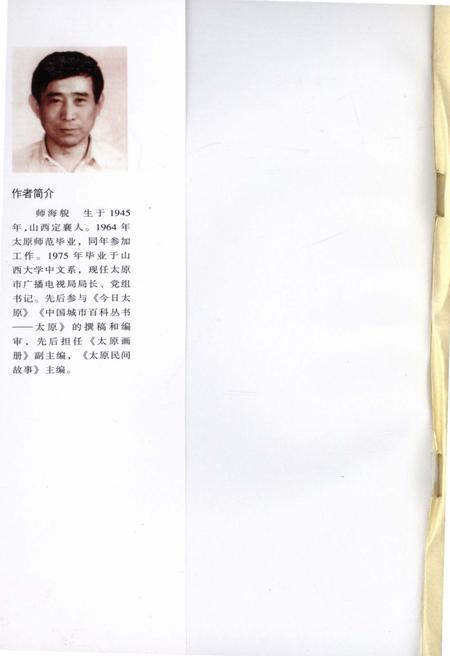 作者简介
师海貌 生于1945
年,山西定襄人。1964年
太原师范毕业，同年参加
工作。1975年毕业于山
西大学中文系，现任太原
市广播电视局局长、党组
书记。先后参与《今日太
原》《中国城市百科丛书
——太原》的撰稿和编
审，先后担任《太原画
册》副主编，《太原民间
故事》主编。